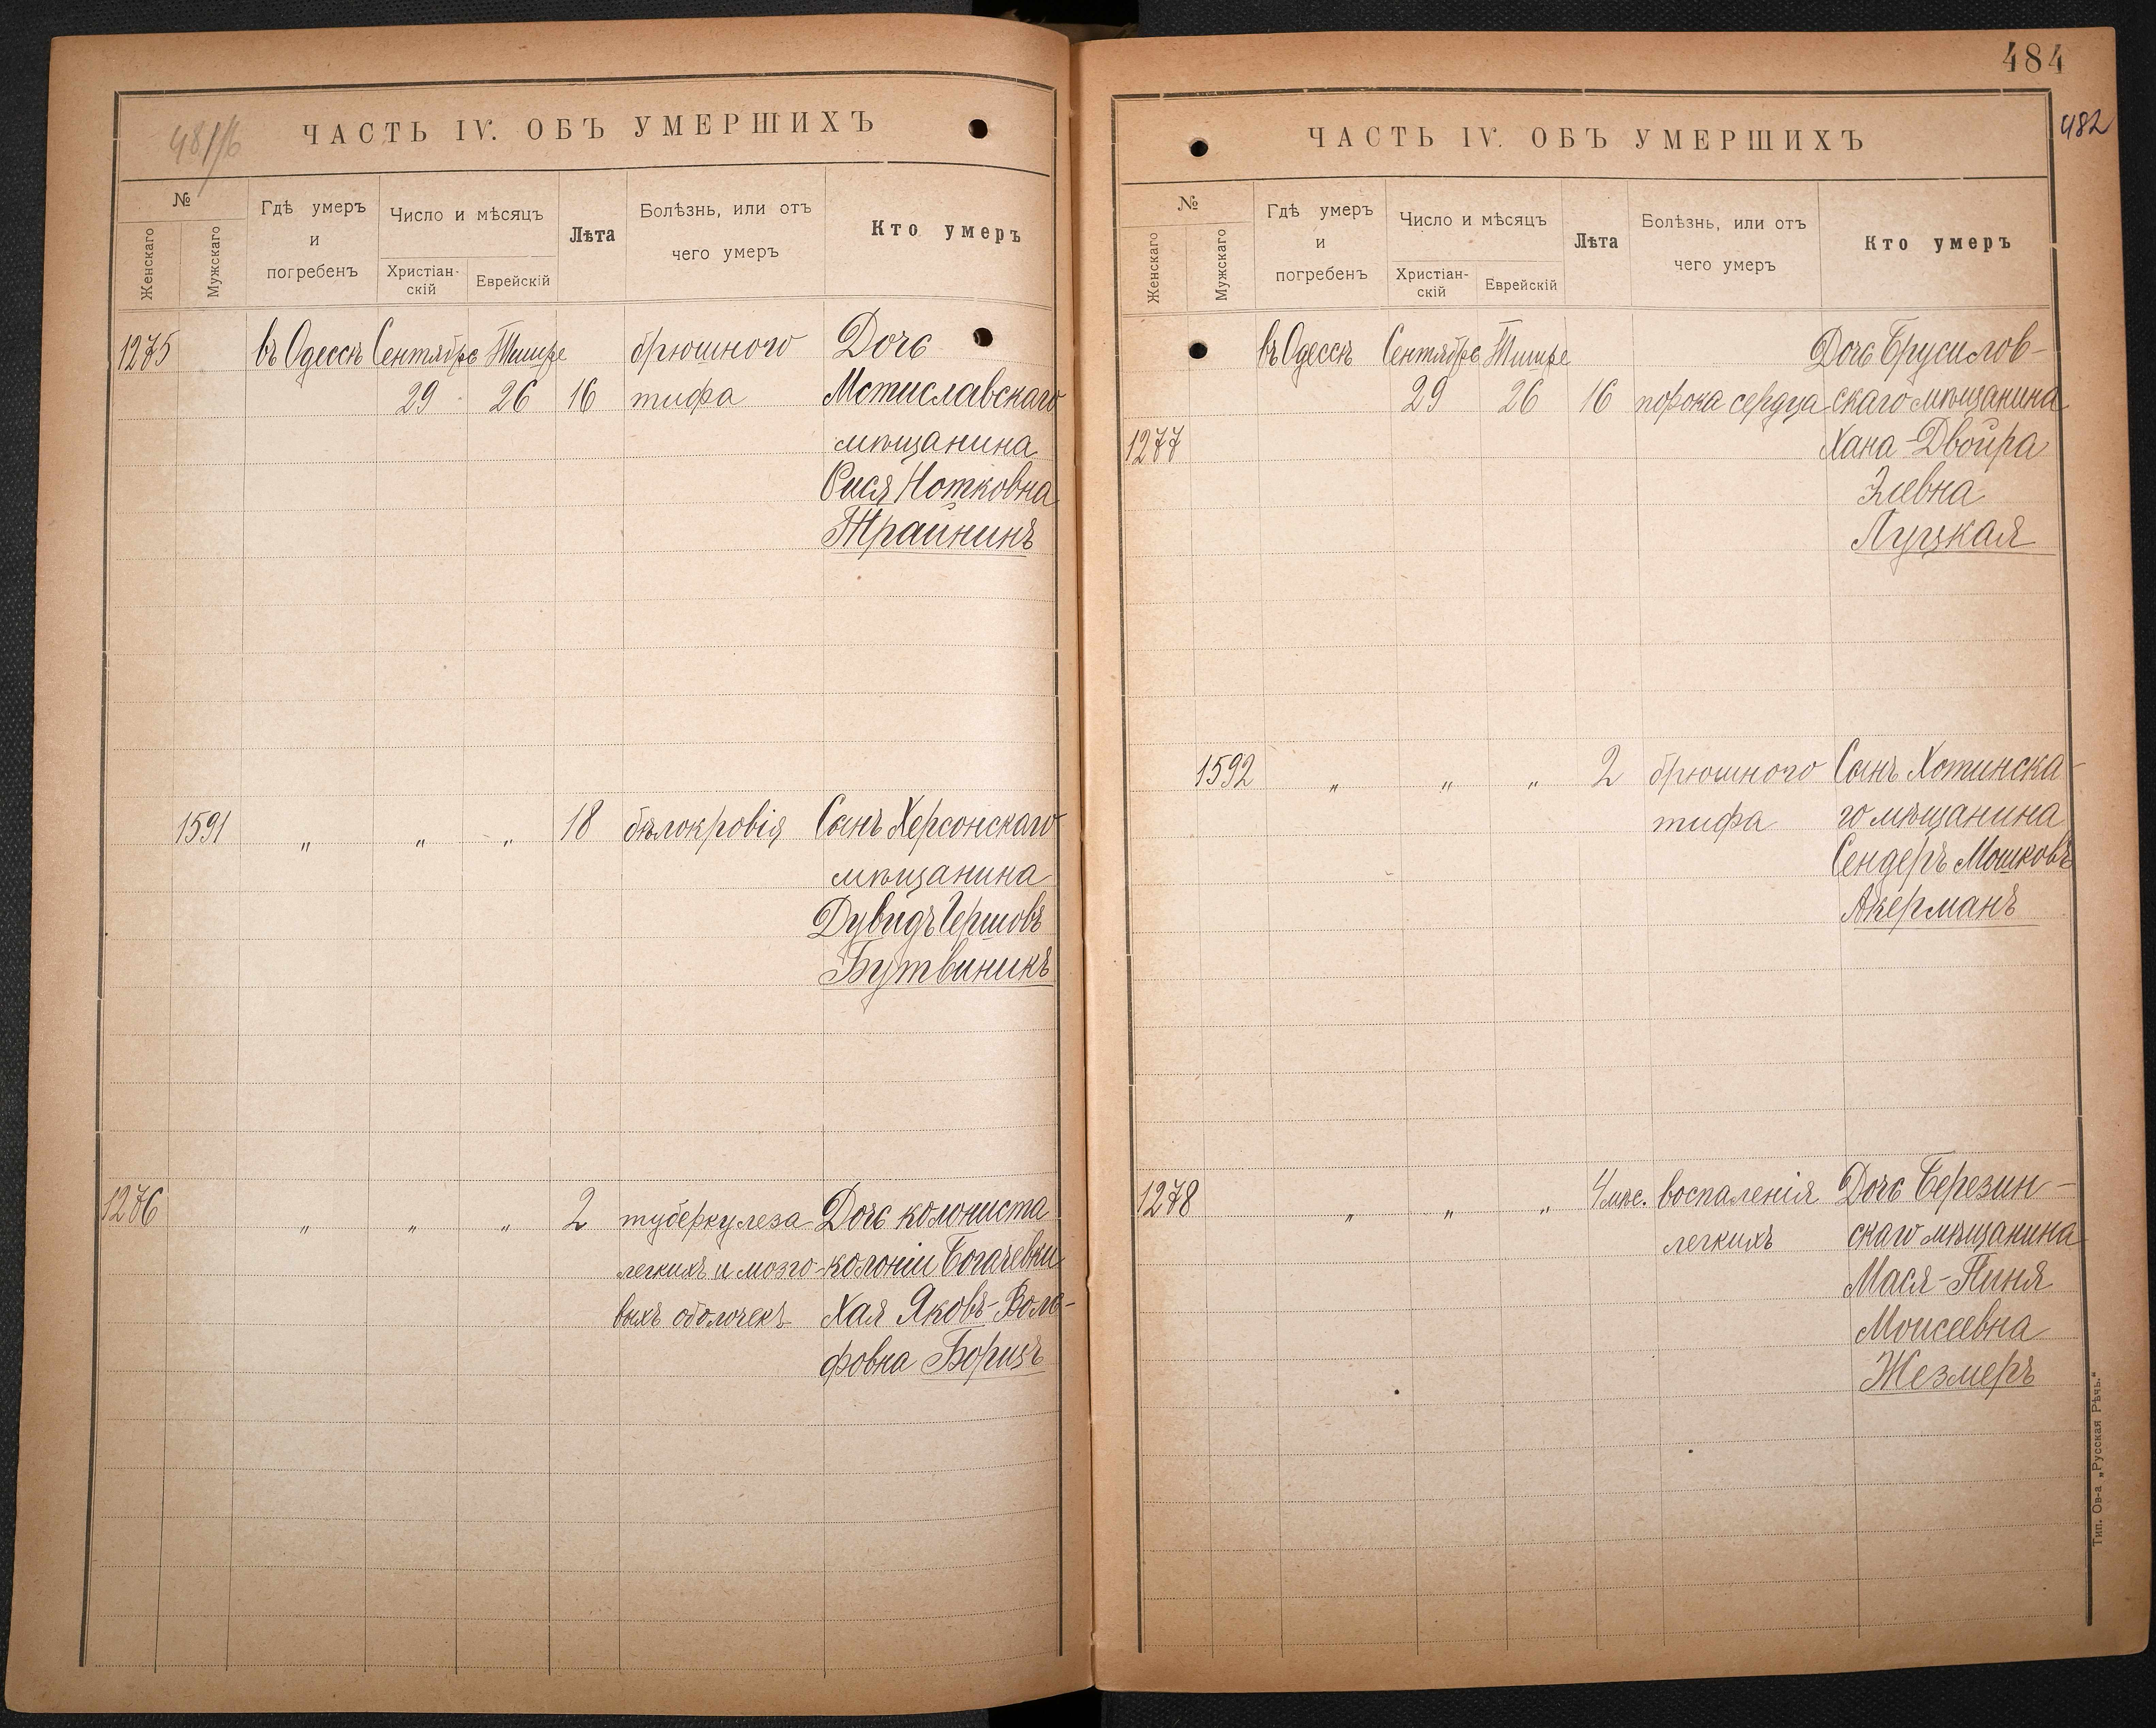 481/б
ЧАСТЬ IV. ОБЪ УМЕРШИХЪ
№
Женскаго
Мужскаго
Гдѣ умеръ
и
погребенъ
Число и мѣсяцъ
Христіан-
скій
Еврейскій
Лѣта
Болѣзнь, или отъ
чего умеръ
Кто умеръ
1275 въ Одессѣ Сентябрь Тишре брюшного Дочь
29 26 16 тифа Мстиславскаго
мѣщанина
Сися Нотковна
Трайнинъ
1591 " " " 18 бѣлокровія Сынъ Херсонскаго
мѣщанина
Дувидъ Гершовъ
Бутвиникъ
1276 " " " 2 туберкулеза Дочь колониста
легкихъ и мозго- колоніи Богачевки
выхъ оболочекъ Хая Яковъ-Воль-
фовна Борицъ
484
482
ЧАСТЬ IV. ОБЪ УМЕРШИХЪ
№
Женскаго
Мужскаго
Гдѣ умеръ
и
погребенъ
Число и мѣсяцъ
Христіан-
скій
Еврейскій
Лѣта
Болѣзнь, или отъ
чего умеръ
Кто умеръ
въ Одессѣ Сентябрь Тишре Дочь Брусилов-
29 26 16 порока сердца скаго мѣщанина
1277 Хана-Двойра
Элевна
Луцкая
1592 " " " 2 брюшного Сынъ Хотинска-
тифа го мѣщанина
Сендеръ Мошковъ
Акерманъ
1278 " " " 4 мѣс. воспаленія Дочь Березин-
легкихъ скаго мѣщанина
Мася-Пиня
Моисеевна
Жезмеръ
Тип. Ов-а „Русская Рѣчь."